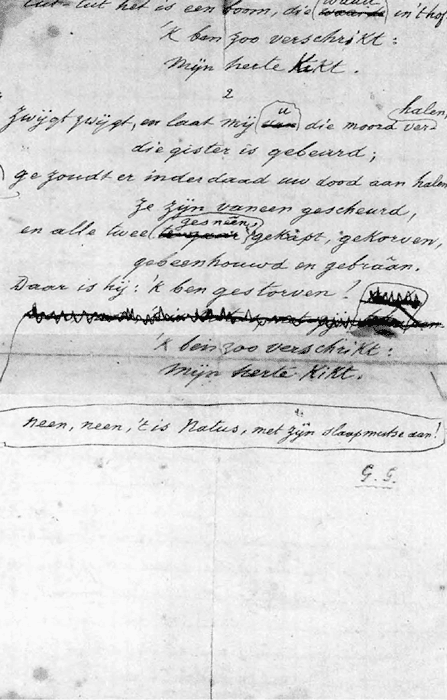 tut-tut het is een boom, die waait in 't hof
'k ben zoo verschrikt:
mijn herte kikt.
2
zwijgt zwijgt, en laat mij u die moord verhalen,
die gister is gebeurd;
ge zoudt er inderdaad uw dood aan halen
ze zijn vaneen gescheurd,
en alle twee gesneên, gekapt, gekorven,
gebeenhouwd en gebraân.
Daar is hij: 'k ben gestorven!
'k ben zoo verschrikt:
mijn herte kikt.
neen, neen, 't is Natus, met zijn slaapmutse aan!
G. G.